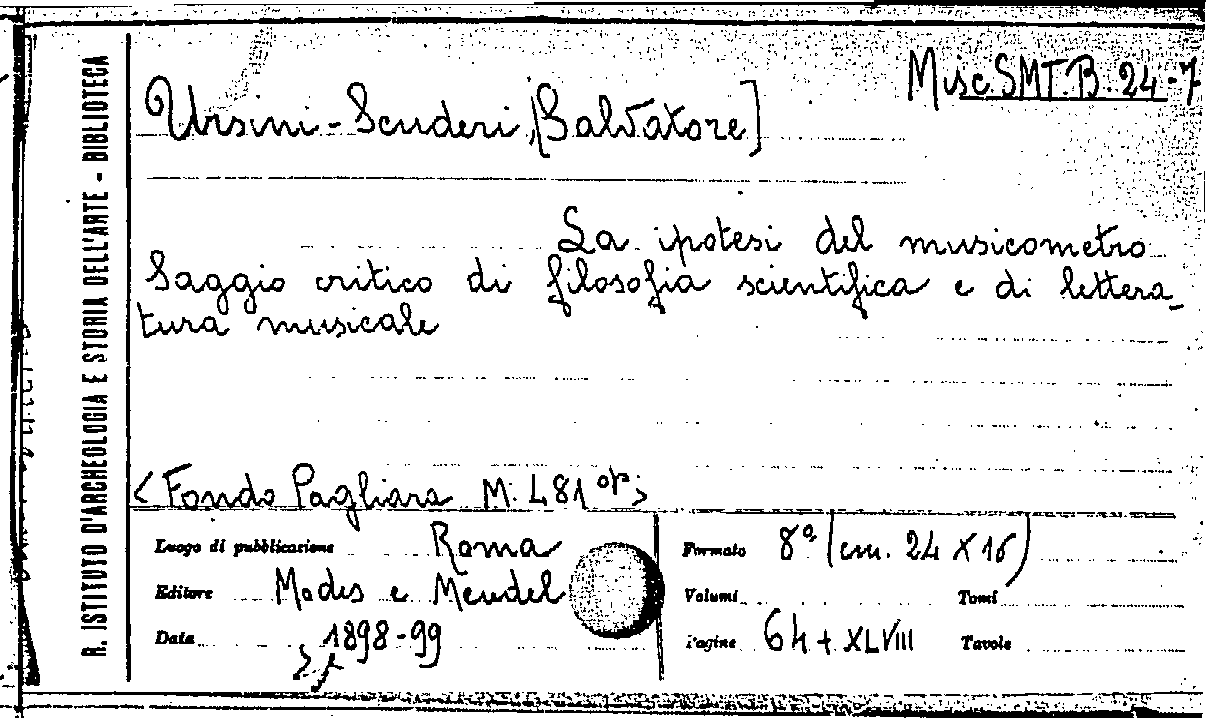 Misc. SMT. B. 24-7
R. ISTITUTO D'ARCHEOLOGIA E STORIA DELL'ARTE - BIBLIOTECA
Ursini-Scuderi, [Salvatore]
La ipotesi del musicometro
Saggio critico di filosofia scientifica e di lettera_
tura musicale
<Fondo Pagliara M. 481 op>
Luogo di pubblicazione Roma
Editore Modes e Mendel
Data 1898-99
Formato 8º (cm. 24 X 16)
Volumi Tomi
Pagine 64 + XLVIII Tavole